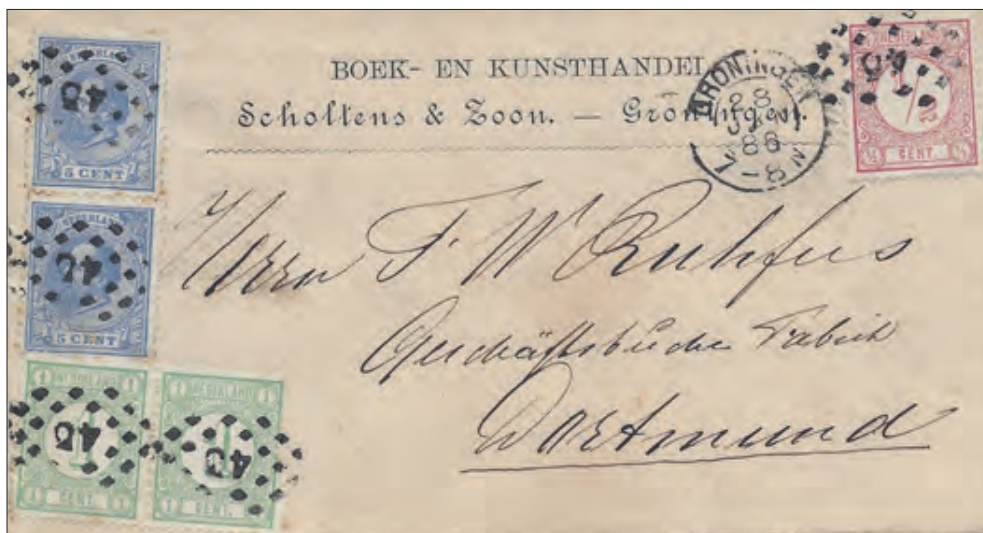 BOEK- EN KUNSTHANDEL
Scholtens & Zoon. — Groningen.
GRONINGEN
28
86
7-8 N
Herrn F. W. Ruhfus
Geschäftsbücher Fabrik
Dortmund
NEDERLAND
5 CENT
45
NEDERLAND
5 CENT
45
NEDERLAND
1 1
1
1 CENT. 1
45
NEDERLAND
1 1
1
1 CENT. 1
45
NEDERLAND
1/2
½ CENT. ½
45